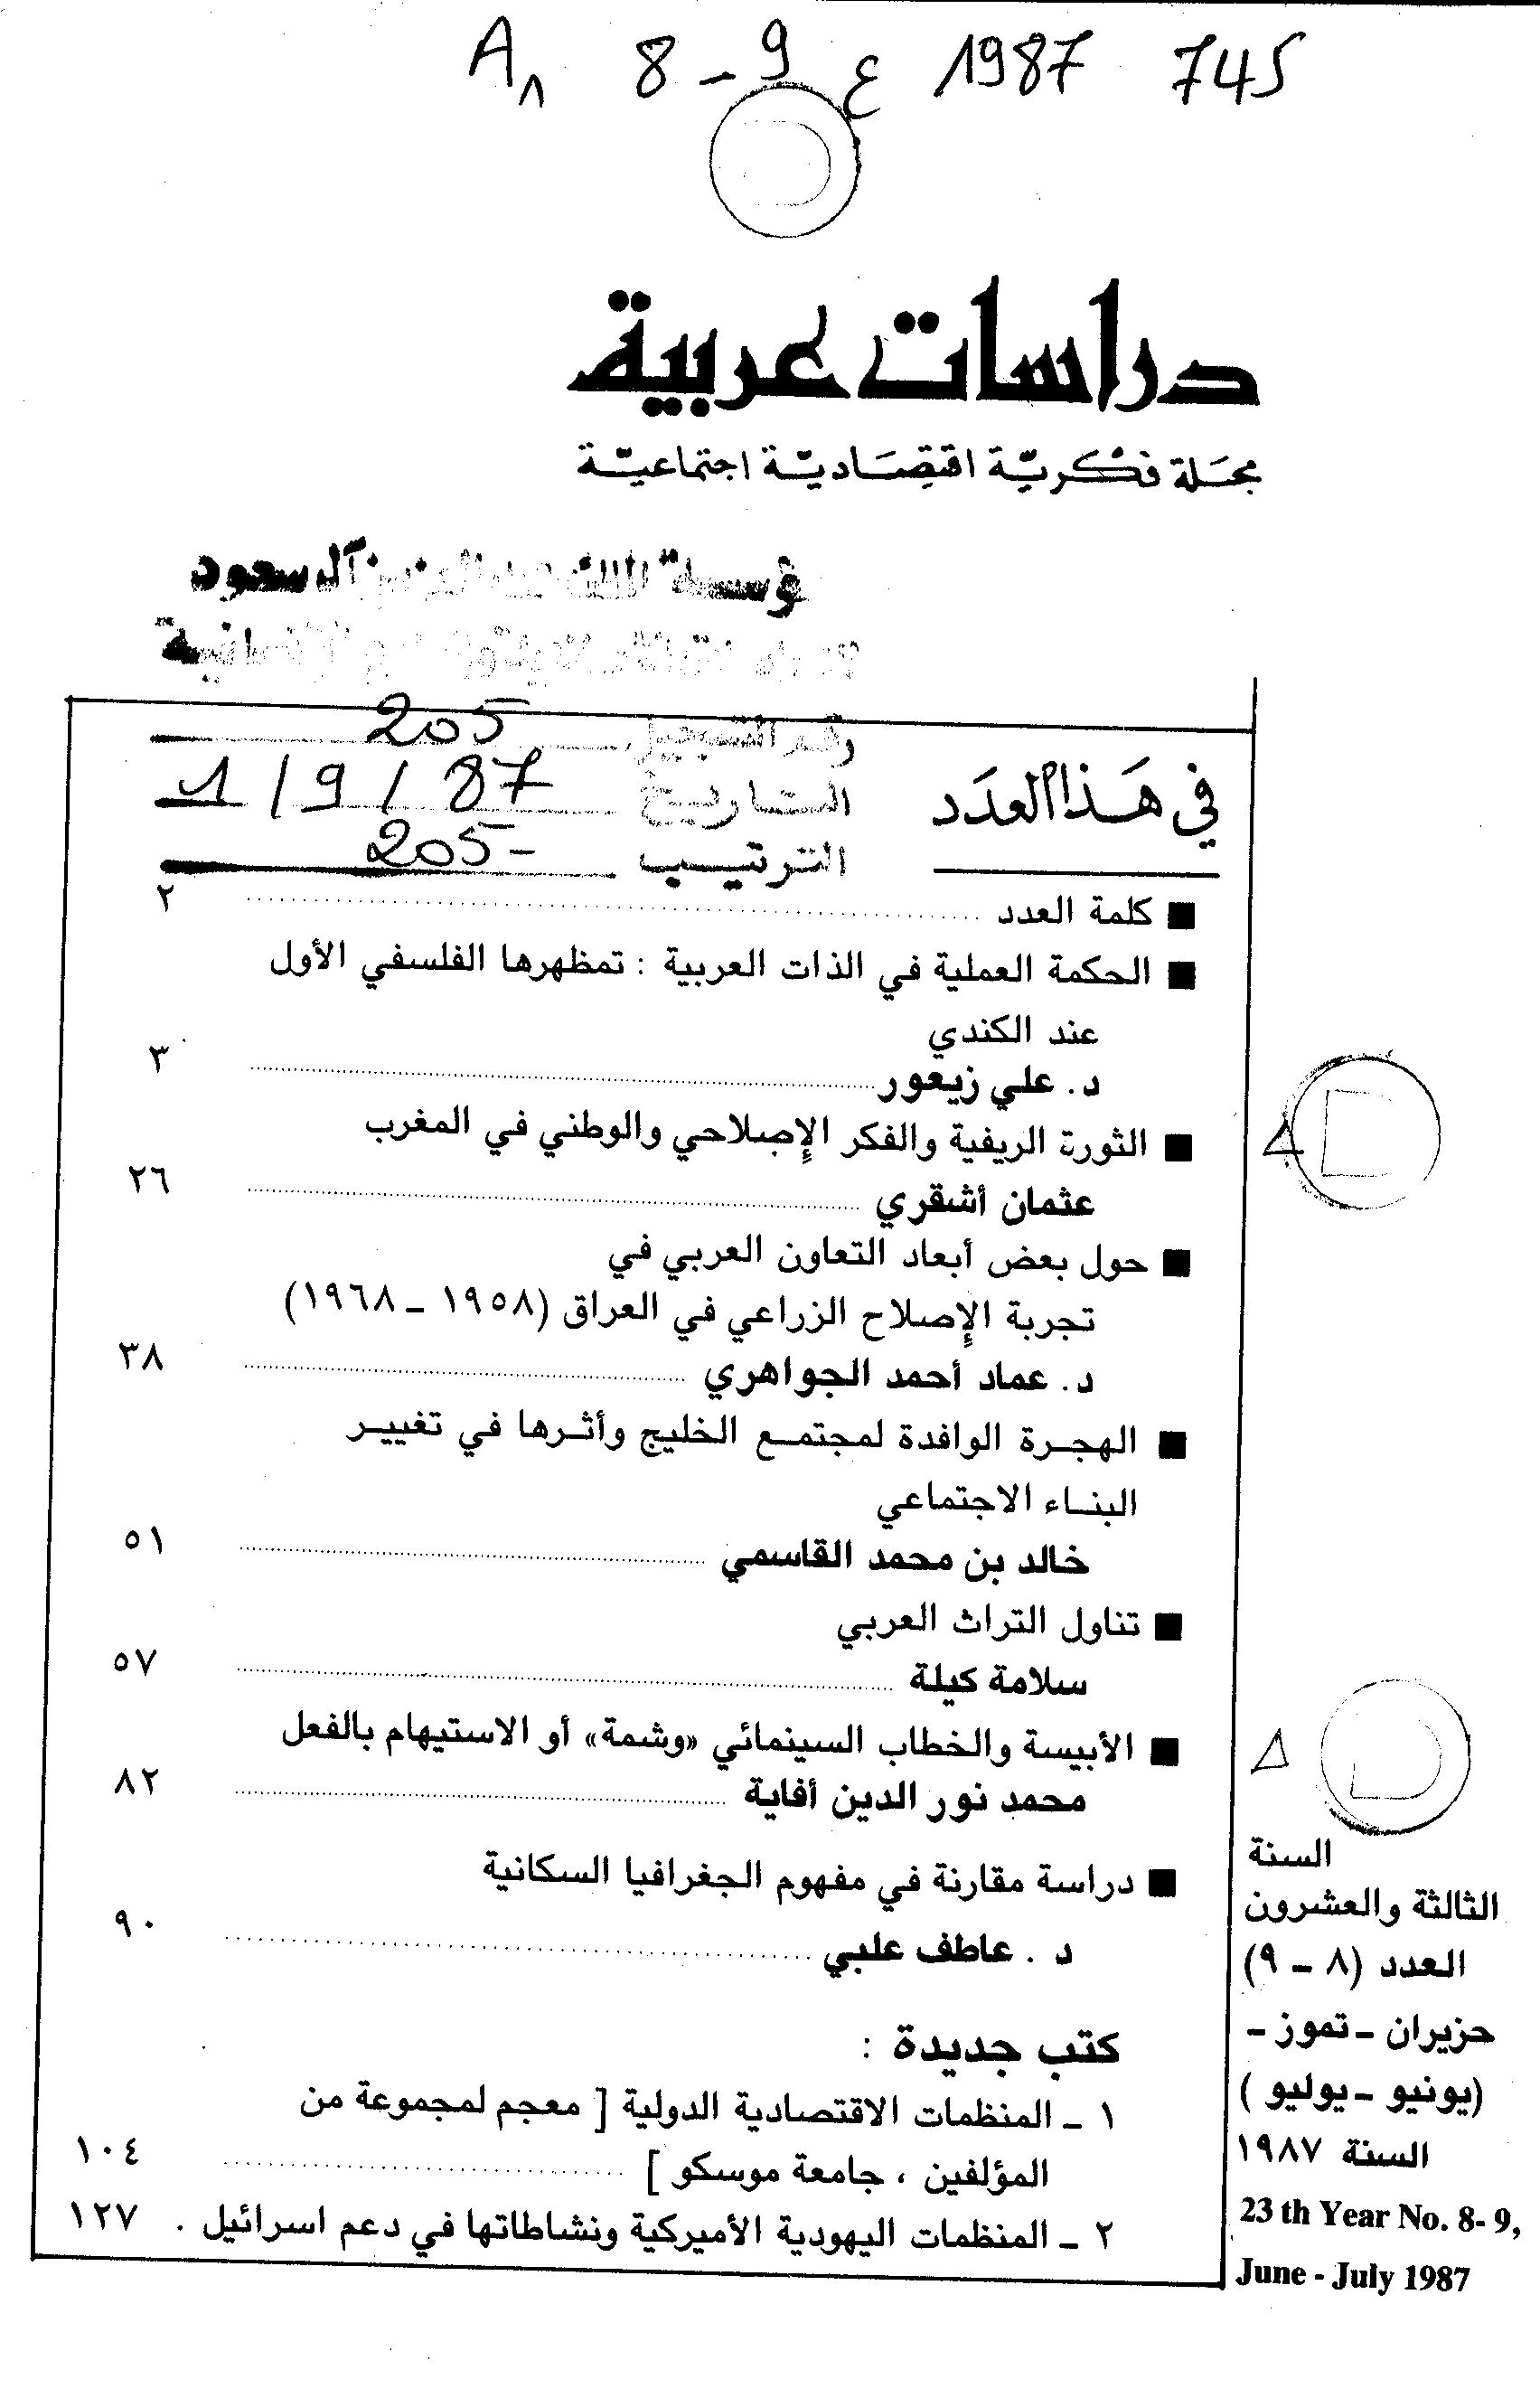 A1 8 - 9 ع 1987 745
دراسات عربية
مجلة فكرية اقتصادية اجتماعية
آل سعود
رقم التسجيل 205
التاريخ 1/9/87
الترتيب 205-
في هذا العدد
■ كلمة العدد ٢
■ الحكمة العملية في الذات العربية : تمظهرها الفلسفي الأول
عند الكندي
د. علي زيعور ٣
■ الثورة الريفية والفكر الإصلاحي والوطني في المغرب
عثمان أشقري ٢٦
■ حول بعض أبعاد التعاون العربي في
تجربة الإصلاح الزراعي في العراق (١٩٥٨ - ١٩٦٨)
د. عماد أحمد الجواهري ٣٨
■ الهجرة الوافدة لمجتمع الخليج وأثرها في تغيير
البناء الاجتماعي
خالد بن محمد القاسمي ٥١
■ تناول التراث العربي
سلامة كيلة ٥٧
■ الأبيسة والخطاب السينمائي «وشمة» أو الاستيهام بالفعل
محمد نور الدين أفاية ٨٢
■ دراسة مقارنة في مفهوم الجغرافيا السكانية
د . عاطف علبي ٩٠
كتب جديدة :
١ - المنظمات الاقتصادية الدولية [ معجم لمجموعة من
المؤلفين ، جامعة موسكو ] ١٠٤
٢ - المنظمات اليهودية الأميركية ونشاطاتها في دعم اسرائيل . ١٢٧
السنة
الثالثة والعشرون
العدد (٨ - ٩)
حزيران - تموز -
(يونيو - يوليو )
السنة ١٩٨٧
23 th Year No. 8- 9,
June - July 1987